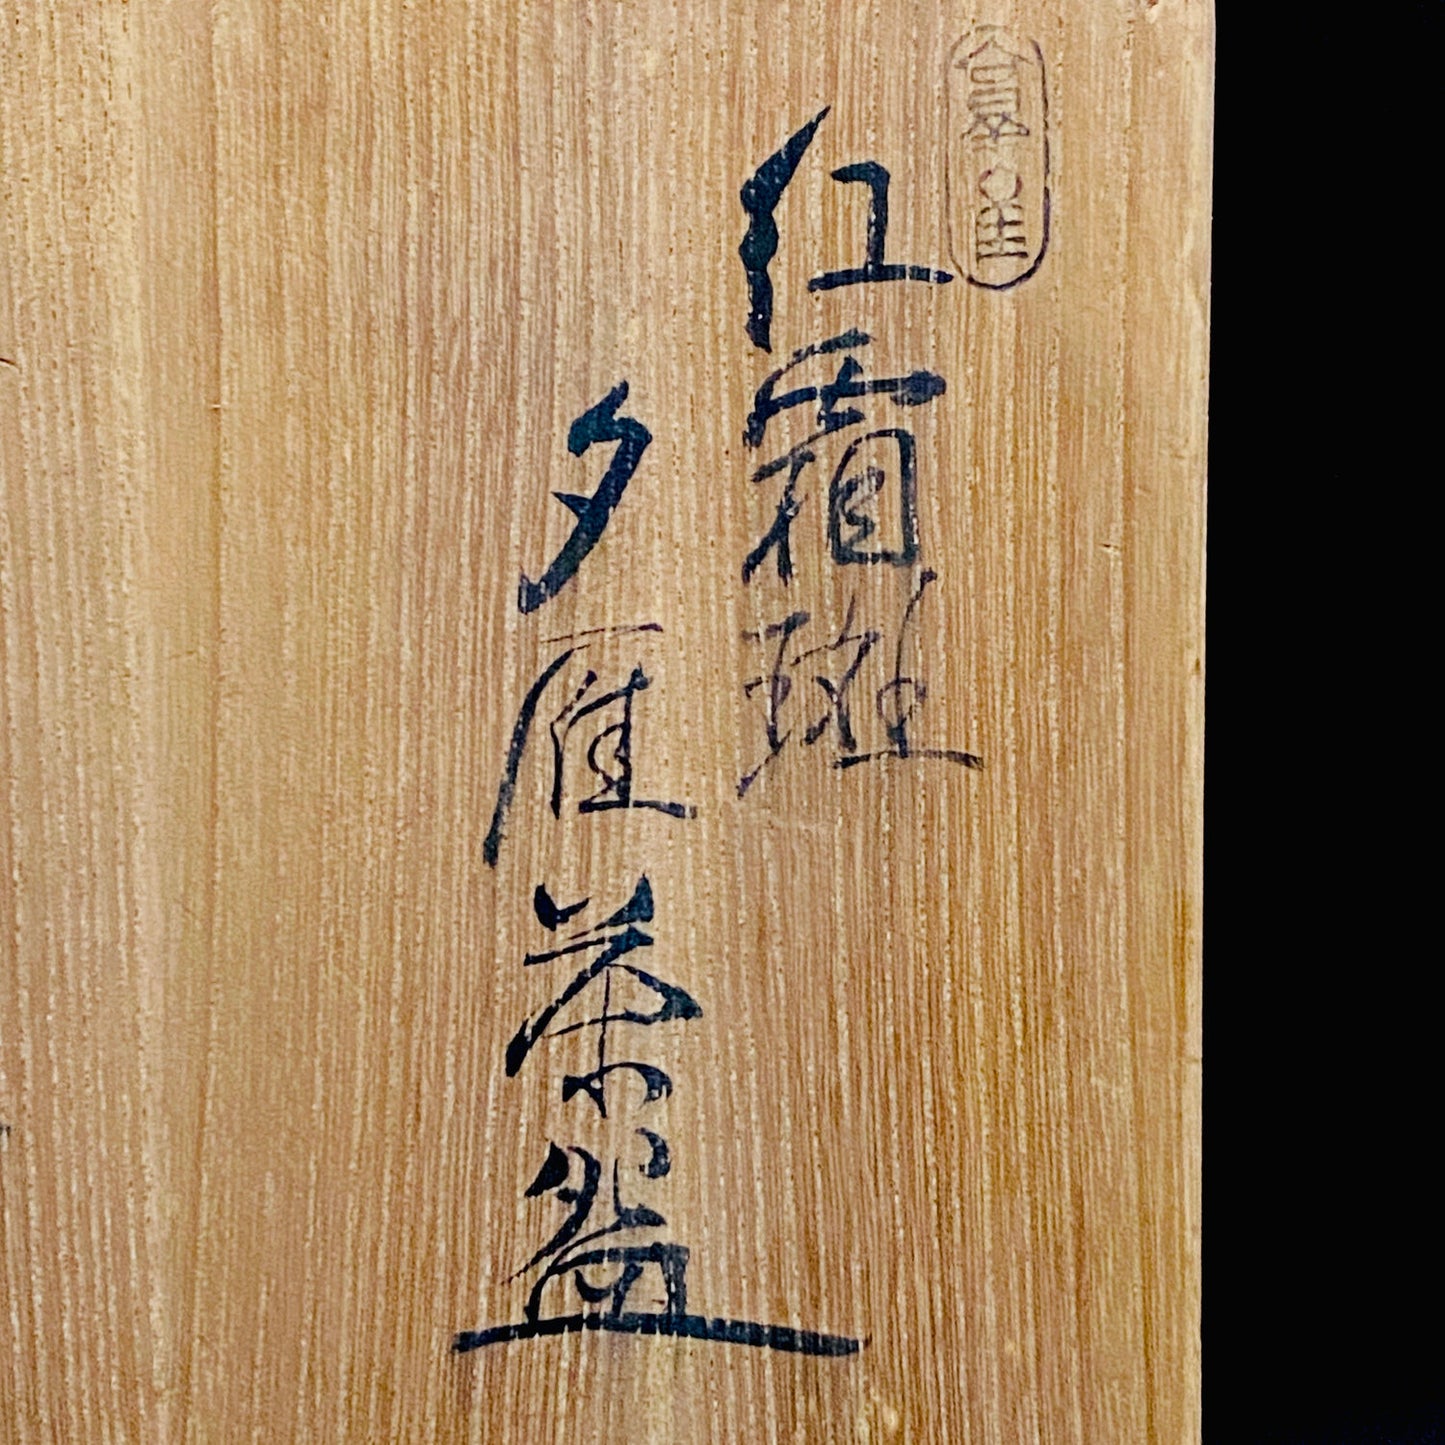 紅霜斑
夕雁茶盌